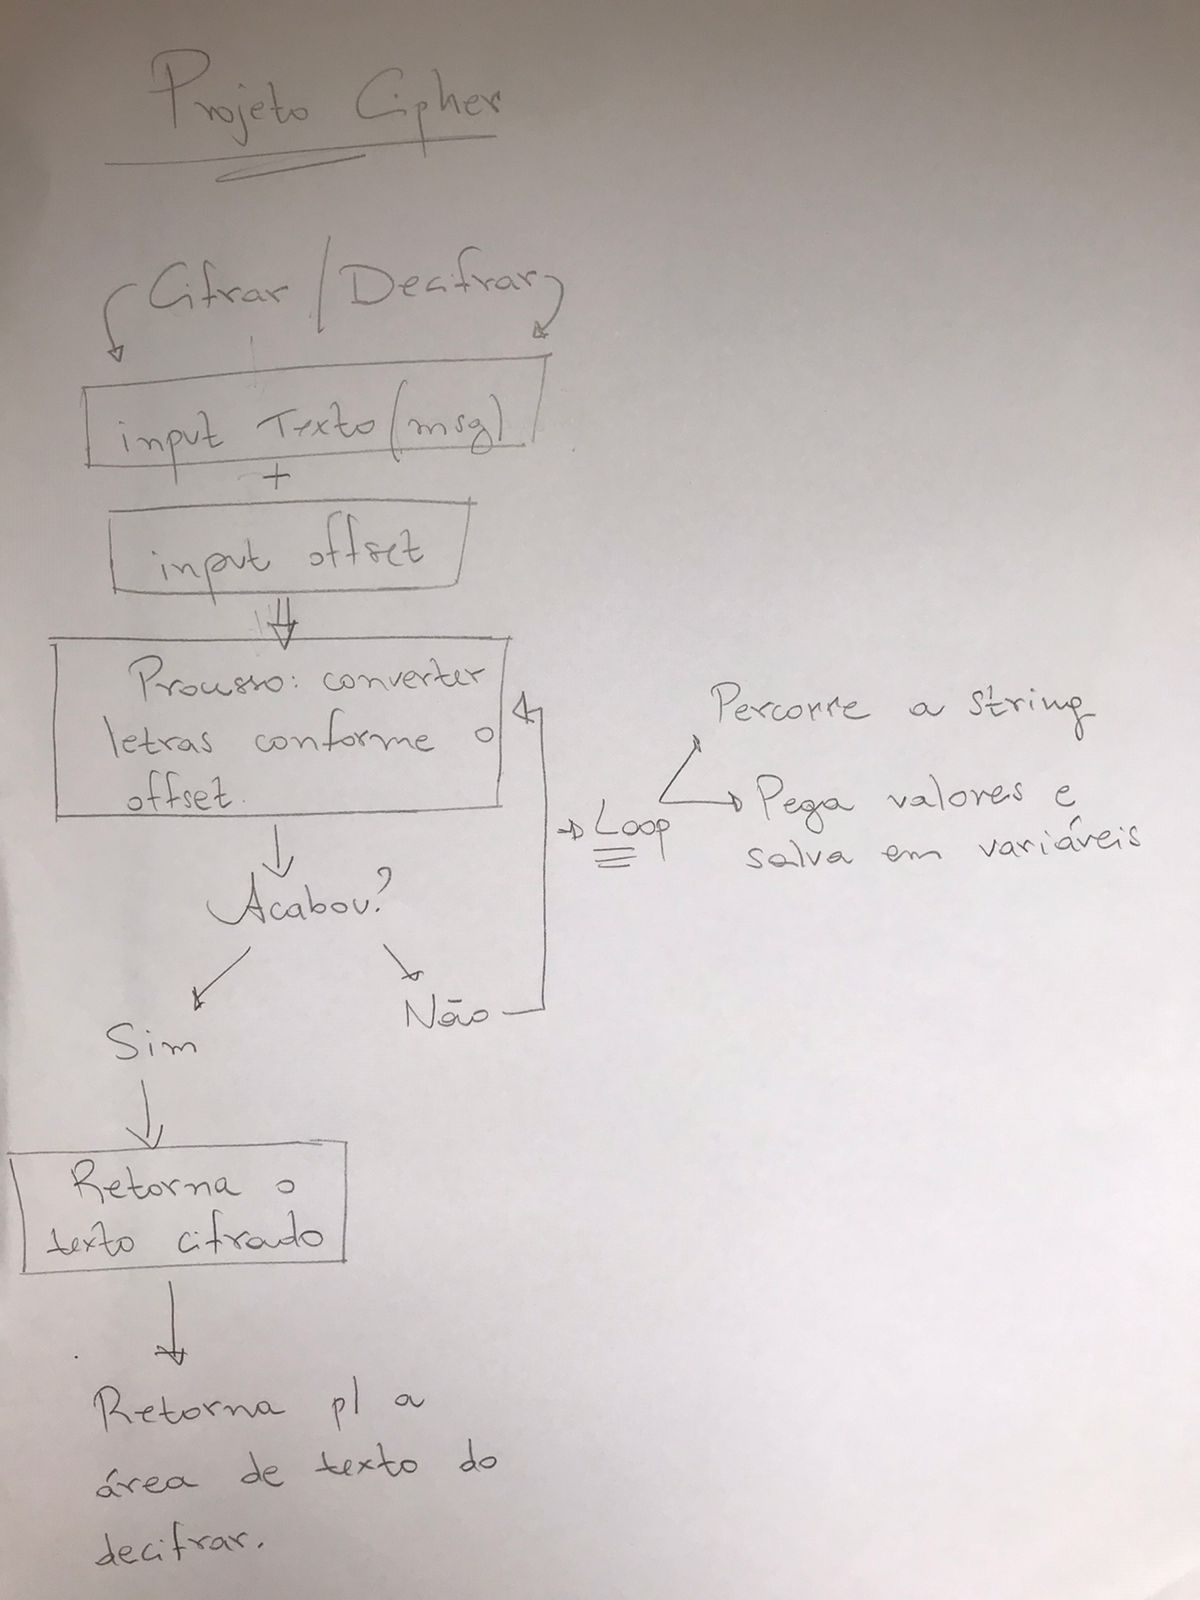 Projeto Cipher
Cifrar / Decifrar
input Texto (msg)
+
input offset
Processo: converter
letras conforme o
offset.
Percorre a string
Loop
Pega valores e
salva em variáveis
Acabou?
Sim
Não
Retorna o
texto cifrado
Retorna p/ a
área de texto do
decifrar.